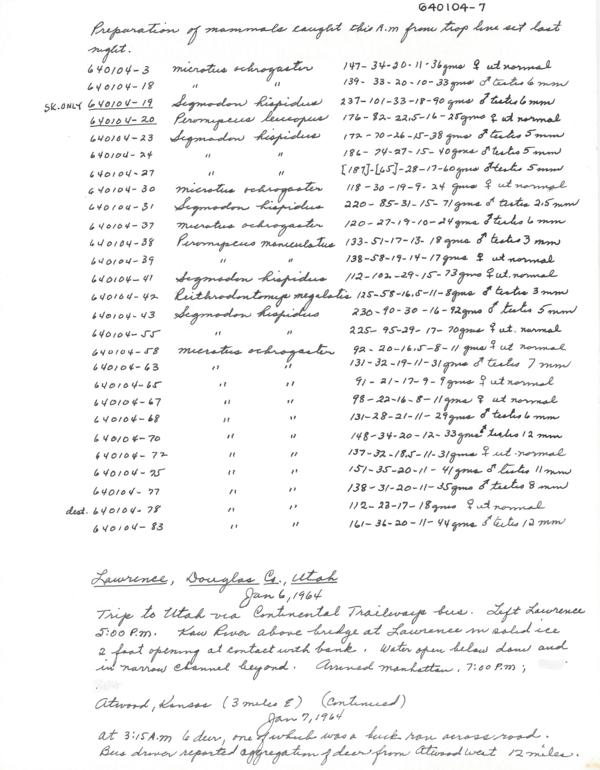 640104-7
Preparation of mammals caught this A.M from trap line set last
night.
640104-3 microtus ochrogaster 147-34-20-11-36gms ♀ ut normal
640104-18 " " 139-33-20-10-33gms ♂ testes 6 mm
SK.ONLY 640104-19 Sigmodon hispidus 237-101-33-18-90 gms ♂ testes 6mm
640104-20 Peromyscus leucopus 176-82-22.5-16-28gms ♀ ut normal
640104-23 Sigmodon hispidus 172-70-26-15-38gms ♂ testes 5mm
640104-24 " " 186-74-27-15-40gms ♂ testes 5mm
640104-27 " " [187]-[65]-28-17-60gms ♂ testes 5mm
640104-30 microtus ochrogaster 118-30-19-9-24 gms ♀ ut normal
640104-31 Sigmodon hispidus 220-85-31-15-71gms ♂ testes 2.5mm
640104-37 microtus ochrogaster 120-27-19-10-24gms ♂ testes 6 mm
640104-38 Peromyscus maniculatus 133-51-17-13-18gms ♂ testes 3 mm
640104-39 " " 138-58-19-14-17gms ♀ ut normal
640104-41 Sigmodon hispidus 112-102-29-15-73gms ♀ ut. normal
640104-42 Reithrodontomys megalotis 125-58-16.5-11-8gms ♂ testes 3 mm
640104-43 Sigmodon hispidus 230-90-30-16-92gms ♂ testes 5 mm
640104-55 " " 225-95-29-17-70gms ♀ ut. normal
640104-58 microtus ochrogaster 92-20-16.5-8-11 gms ♀ ut normal
640104-63 " " 131-32-19-11-31gms ♂ testes 7 mm
640104-65 " " 91-21-17-9-9gms ♀ ut normal
640104-67 " " 98-22-16-8-11gms ♀ ut normal
640104-68 " " 131-28-21-11-29gms ♂ testes 6 mm
640104-70 " " 148-34-20-12-33gms ♂ testes 12 mm
640104-72 " " 137-32-18.5-11-31gms ♀ ut. normal
640104-75 " " 151-35-20-11-41gms ♂ testes 11mm
640104-77 " " 138-31-20-11-35gms ♂ testes 8 mm
dest. 640104-78 " " 112-23-17-18gms ♀ ut normal
640104-83 " " 161-36-20-11-44gms ♂ testes 12 mm
Lawrence, Douglas Co., Utah
Jan 6, 1964
Trip to Utah via Continental Trailways bus. Left Lawrence
5:00 P.M. Kaw River above bridge at Lawrence in solid ice
2 foot opening at contact with bank. Water open below dam and
in narrow channel beyond. Arrived Manhattan, 7:00 P.M;
Atwood, Kansas (3 miles E) (Continued)
Jan 7, 1964
at 3:15 A.M 6 deer, one of which was a buck ran across road.
Bus driver reported aggregation of deer from Atwood west 12 miles.